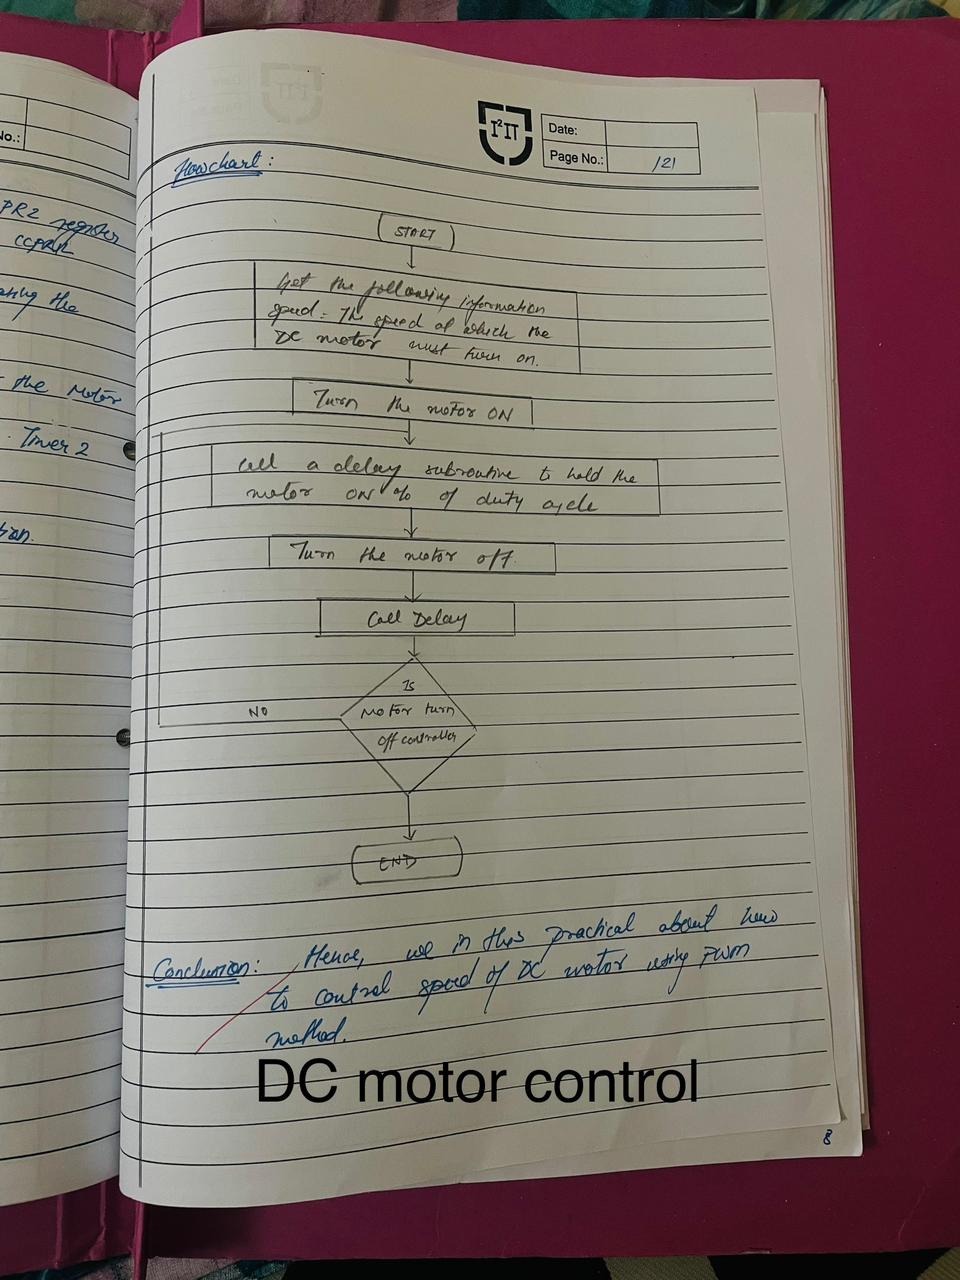 No.:
PR2 register
CCPR1L
the
the Motor
Timer 2
I²IT
Date:
Page No.: /21
Flowchart:
START
Get the following information
speed = The speed at which the
DC motor must turn on.
Turn the motor ON
Call a delay subroutine to hold the
motor ON % of duty cycle
Turn the motor off.
Call Delay
Is
Motor turn
off controller
NO
END
Conclusion: Hence, we in this practical about how
to control speed of DC motor using PWM
method.
DC motor control
8